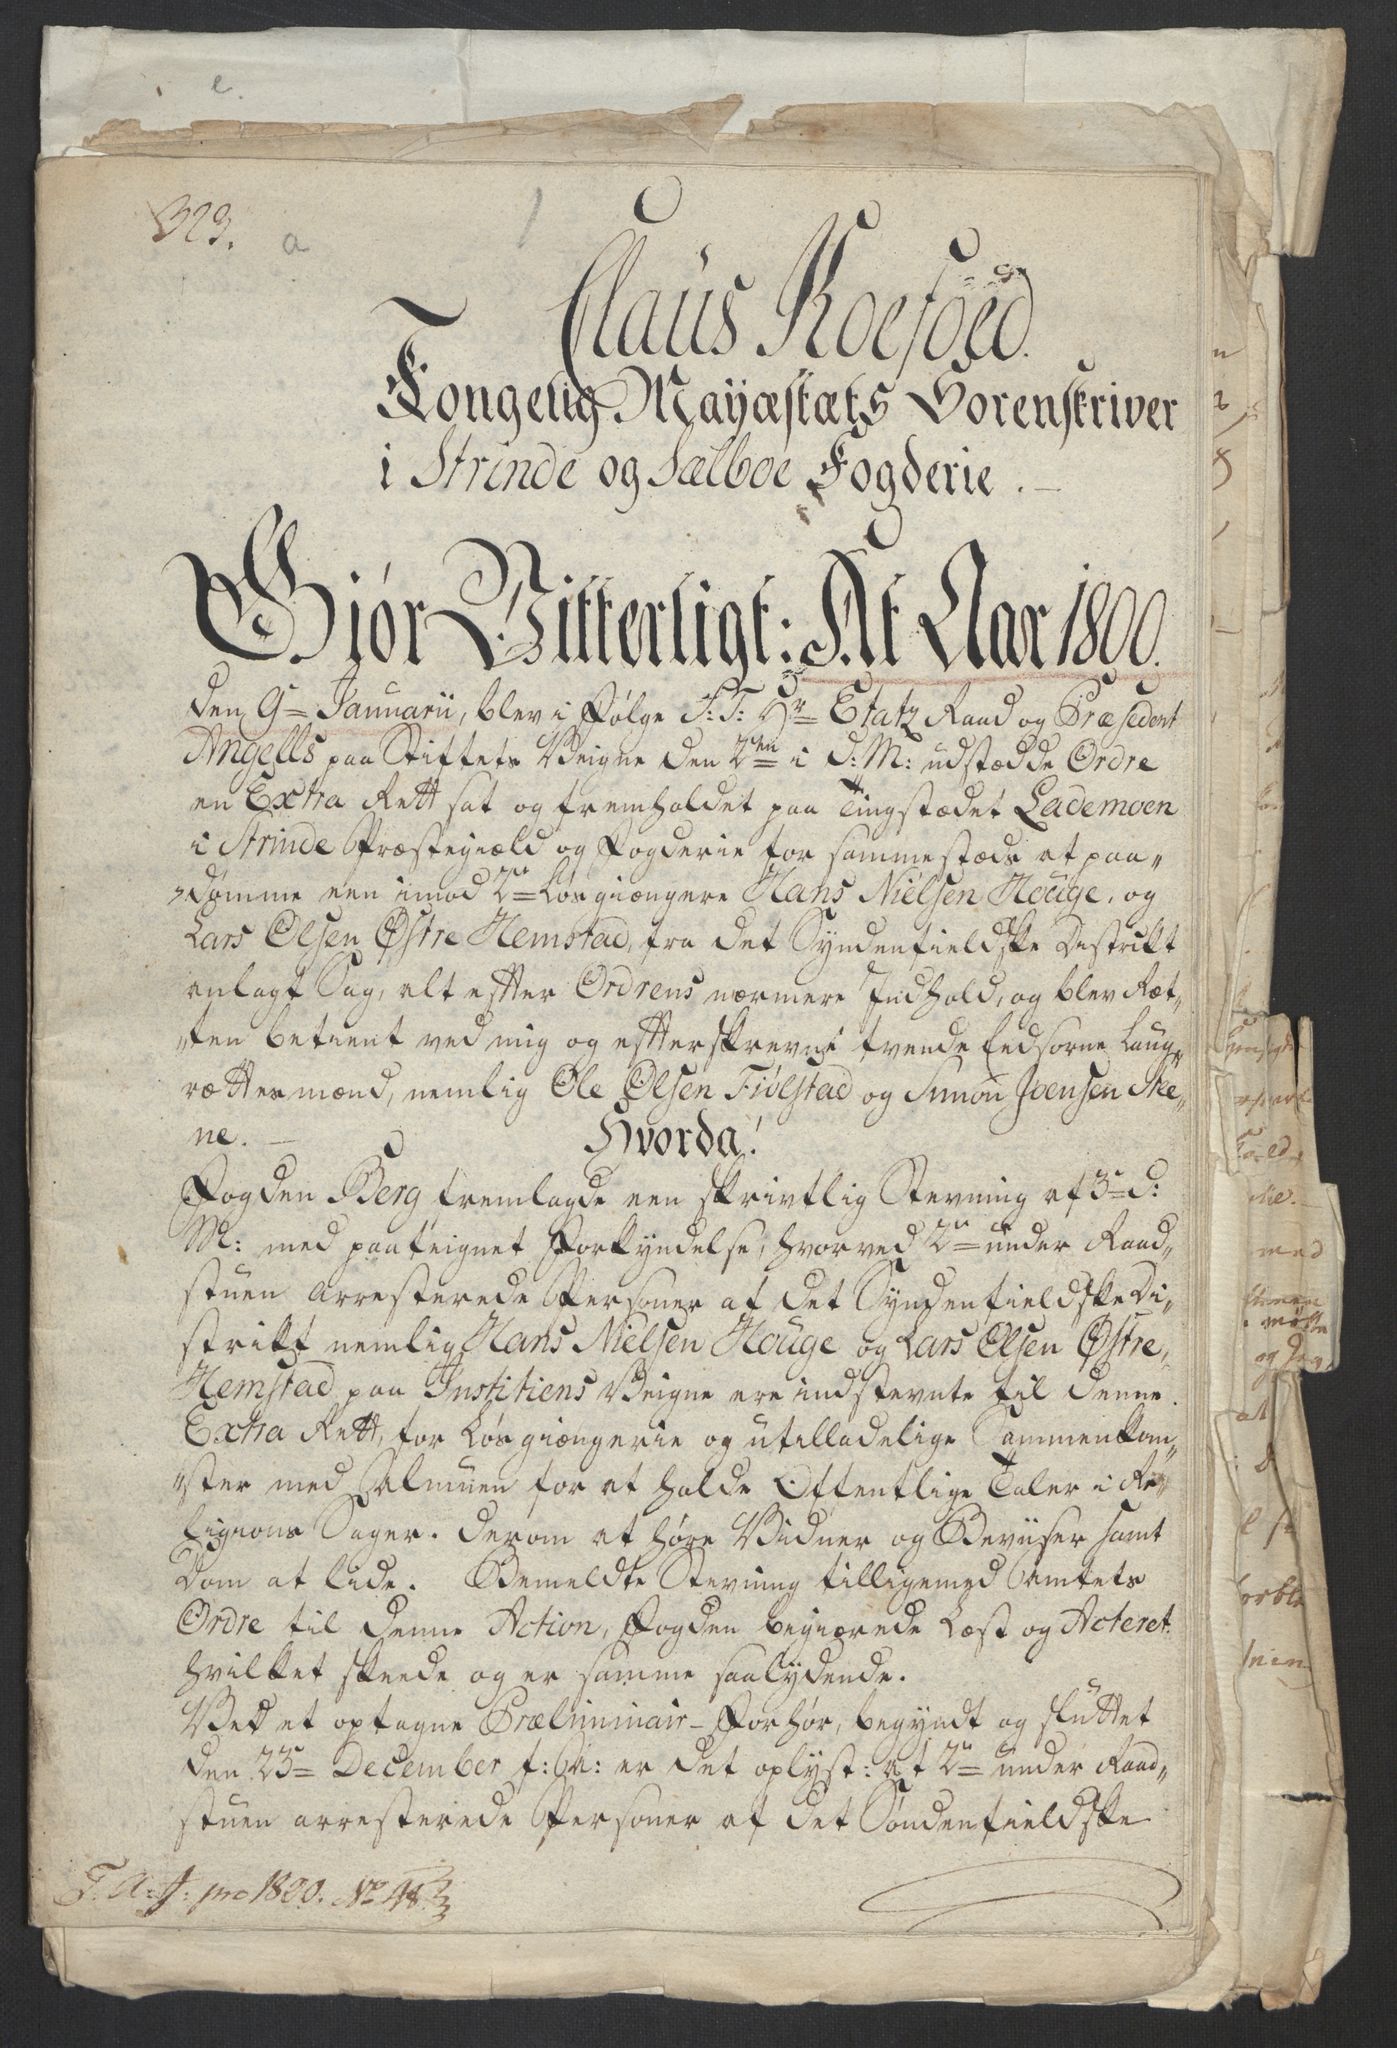 e.
323. a 1
Claus Koefoed.
Kongelig Mayæstæts Sorenskriver
i Strinde og Sælboe Fogderie.
Giør Vitterligt: At Aar 1800.
den 9de Januarii, blev i Følge S: T: Hr Etatz Raad og Præsedent
Angells paa Stiftets Veigne den 2den i d: M: udstædde Ordre
en Extra Rett sat og fremholdet paa Tingstædet Lademoen
i Strinde Præstegiæld og Fogderie for sammestæds at paa-
dømme een imod 2de Løsgiængere Hans Nielsen Houge, og
Lars Olsen Østre Hemstad, fra det Syndenfieldske Distrikt
anlagt Sag, alt efter Ordrens nærmere Indhold, og blev Ræt-
ten betient ved mig og efterskrevne tvende Eedsorne Laug-
rættesmænd, nemlig Ole Olsen Fiølstad og Simon Joensen Ske-
ne. Hvorda!
Fogden Berg fremlagde een skrivtlig Stevning af 3de d:
M: med paateignet Forkyndelse, hvorved 2de under Raad-
stuen arresterede Personer af det Syndenfieldske Di-
strikt nemlig Hans Nielsen Houge og Lars Olsen Østre
Hemstad paa Justitiens Veigne ere indstevnte til denne
Extra Rett, for Løsgiængerie og utilladelige Sammenkom-
ster med Almuen for at holde Offentlige Taler i Re-
ligions Sager. derom at høre Vidner og Beviiser samt
Dom at lide. Bemeldte Stevning tilligemed Amtets
Ordre til denne Action, Fogden begiærede Læst og Acteret.
hvilket skeede og er samme saalydende.
Ved et optagne Præliminair-Forhør, begyndt og sluttet
den 23de December f: A: er det oplyst: at 2de under Raad-
stuen arresterede Personer af det Søndenfieldske
T. A: J: pro 1800. No 48.